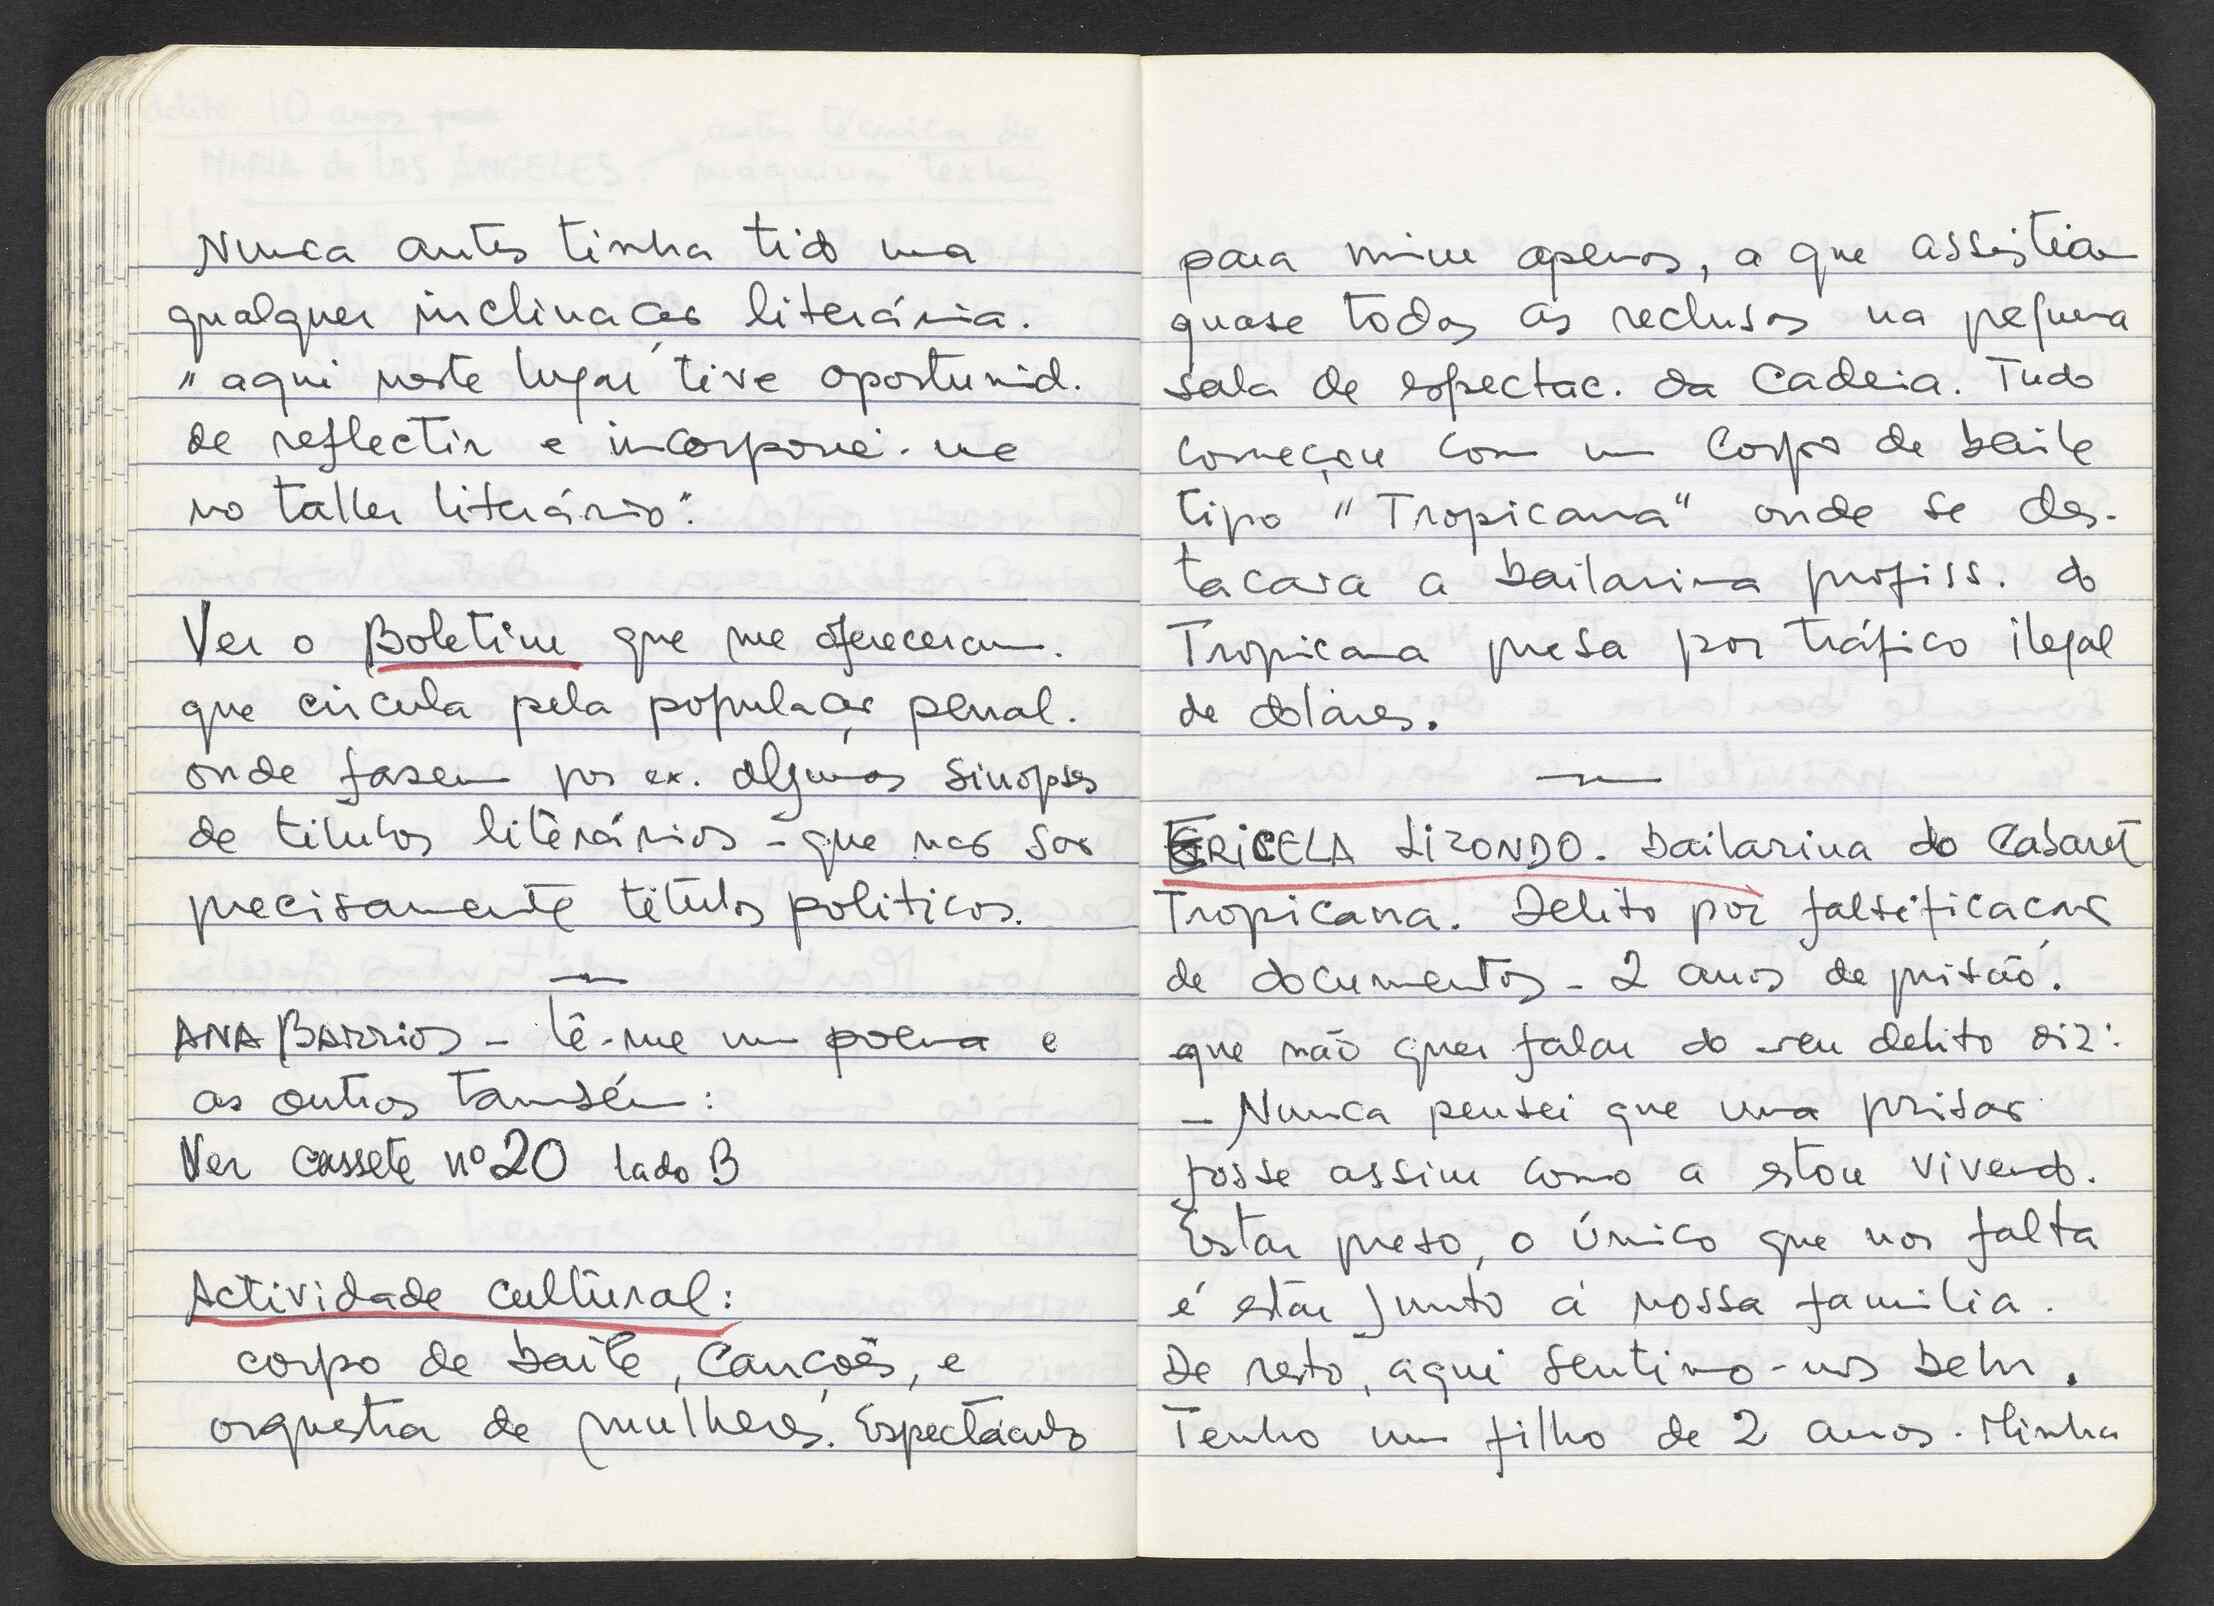 Nunca antes tinha tido uma
qualquer inclinação literária.
"aqui neste lugar tive oportunid.
de reflectir e incorporei-me
no taller literário".
Ver o Boletim que me ofereceram.
que circula pela população penal.
onde fazem por ex. algumas sinopses
de titulos literários - que não são
precisamente titulos politicos.
ANA BARRIOS - lê-me um poema e
as outras também:
Ver cassete nº 20 lado B
Actividade cultural:
corpo de baile, canções, e
orquestra de mulheres. Espectáculo
para mim apenas, a que assistiam
quase todas as reclusas na pequena
sala de espectac. da Cadeia. Tudo
começou com um Corpo de baile
tipo "Tropicana" onde se des-
tacava a bailarina profiss. do
Tropicana presa por tráfico ilegal
de dolares.
GRICELA LIZONDO. bailarina do Cabaret
Tropicana. Delito por falsificação
de documentos - 2 anos de prisão.
que não quer falar do seu delito diz:
- Nunca pensei que uma prisão
fosse assim como a estou vivendo.
Estar preso, o único que nos falta
é estar junto á nossa familia.
De resto, aqui sentimo-nos bem.
Tenho um filho de 2 anos. Minha